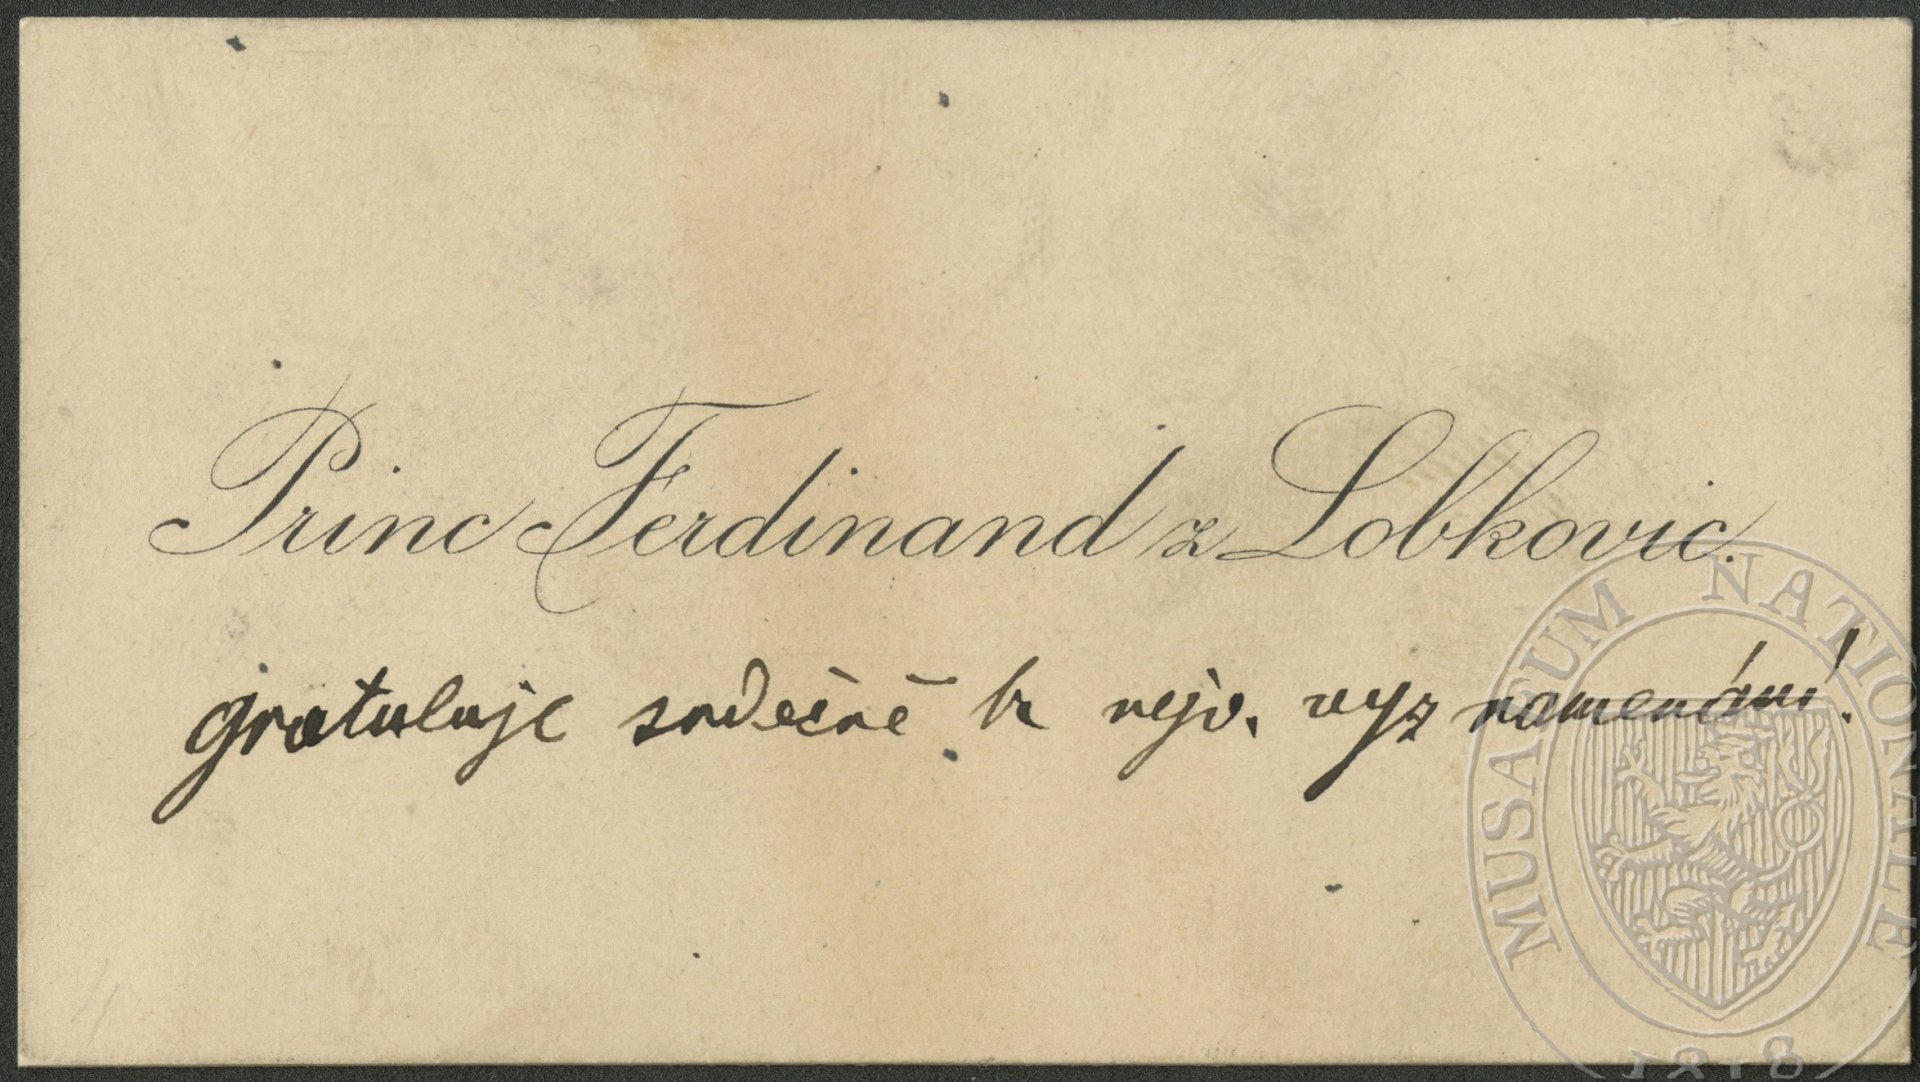 Princ Ferdinand z Lobkovic.
gratuluje srdečně k nejv. vyznamenání!
MUSAEUM NATIONALE
1818